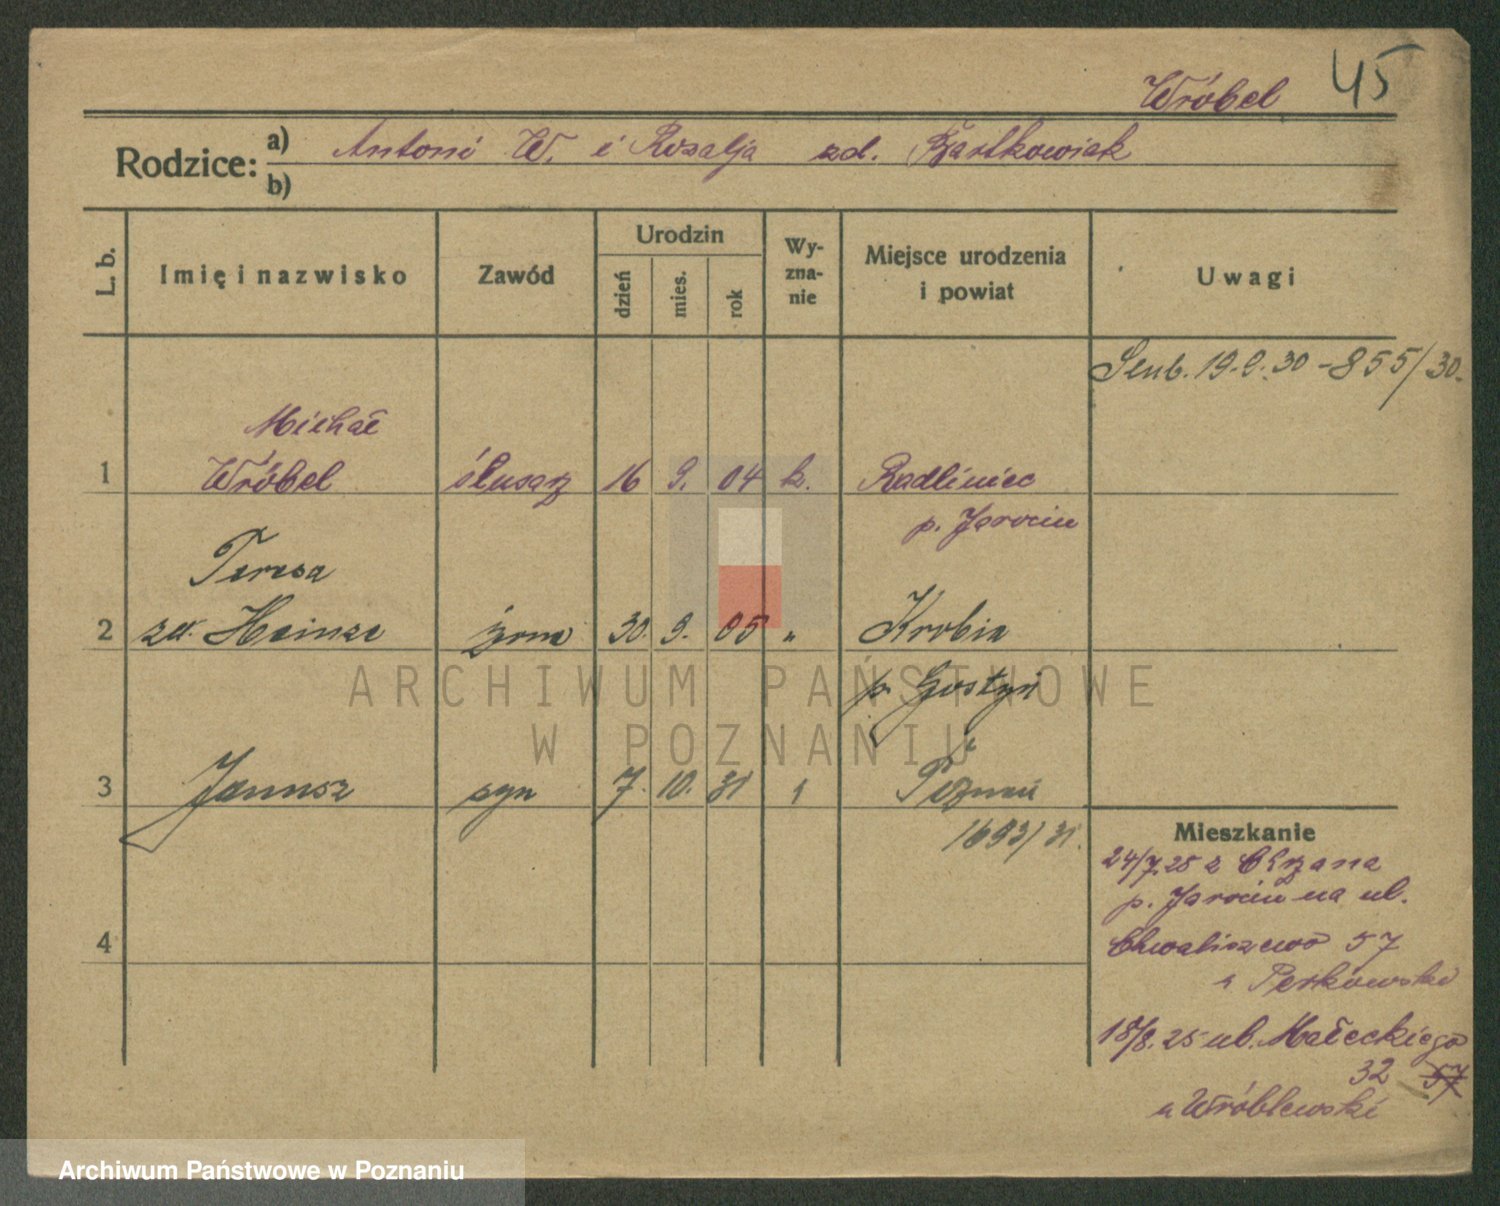 45
Wróbel
Rodzice: a) Antoni W. i Rozalja zd. Bartkowiak
b)
L. b. Imię i nazwisko Zawód Urodzin dzień mies. rok Wy-zna-nie Miejsce urodzenia i powiat Uwagi
19.9.30 - 855/30.
Michał
1 Wróbel ślusarz 16 9. 04 k. Radliniec
p. Jarocin
Teresa
2 zd. Heinze żona 30. 9. 05 " Krobia
p. Gostyń
3 Janusz syn 7. 10. 31 Poznań
1693/31.
4
Mieszkanie
24/7.25 z Chrzana
p. Jarocin na ul.
Chwaliszewo 57
u Perkowski
18/8.25 ul. Małeckiego
32 57
u Wróblewski
ARCHIWUM PAŃSTWOWE
W POZNANIU
Archiwum Państwowe w Poznaniu